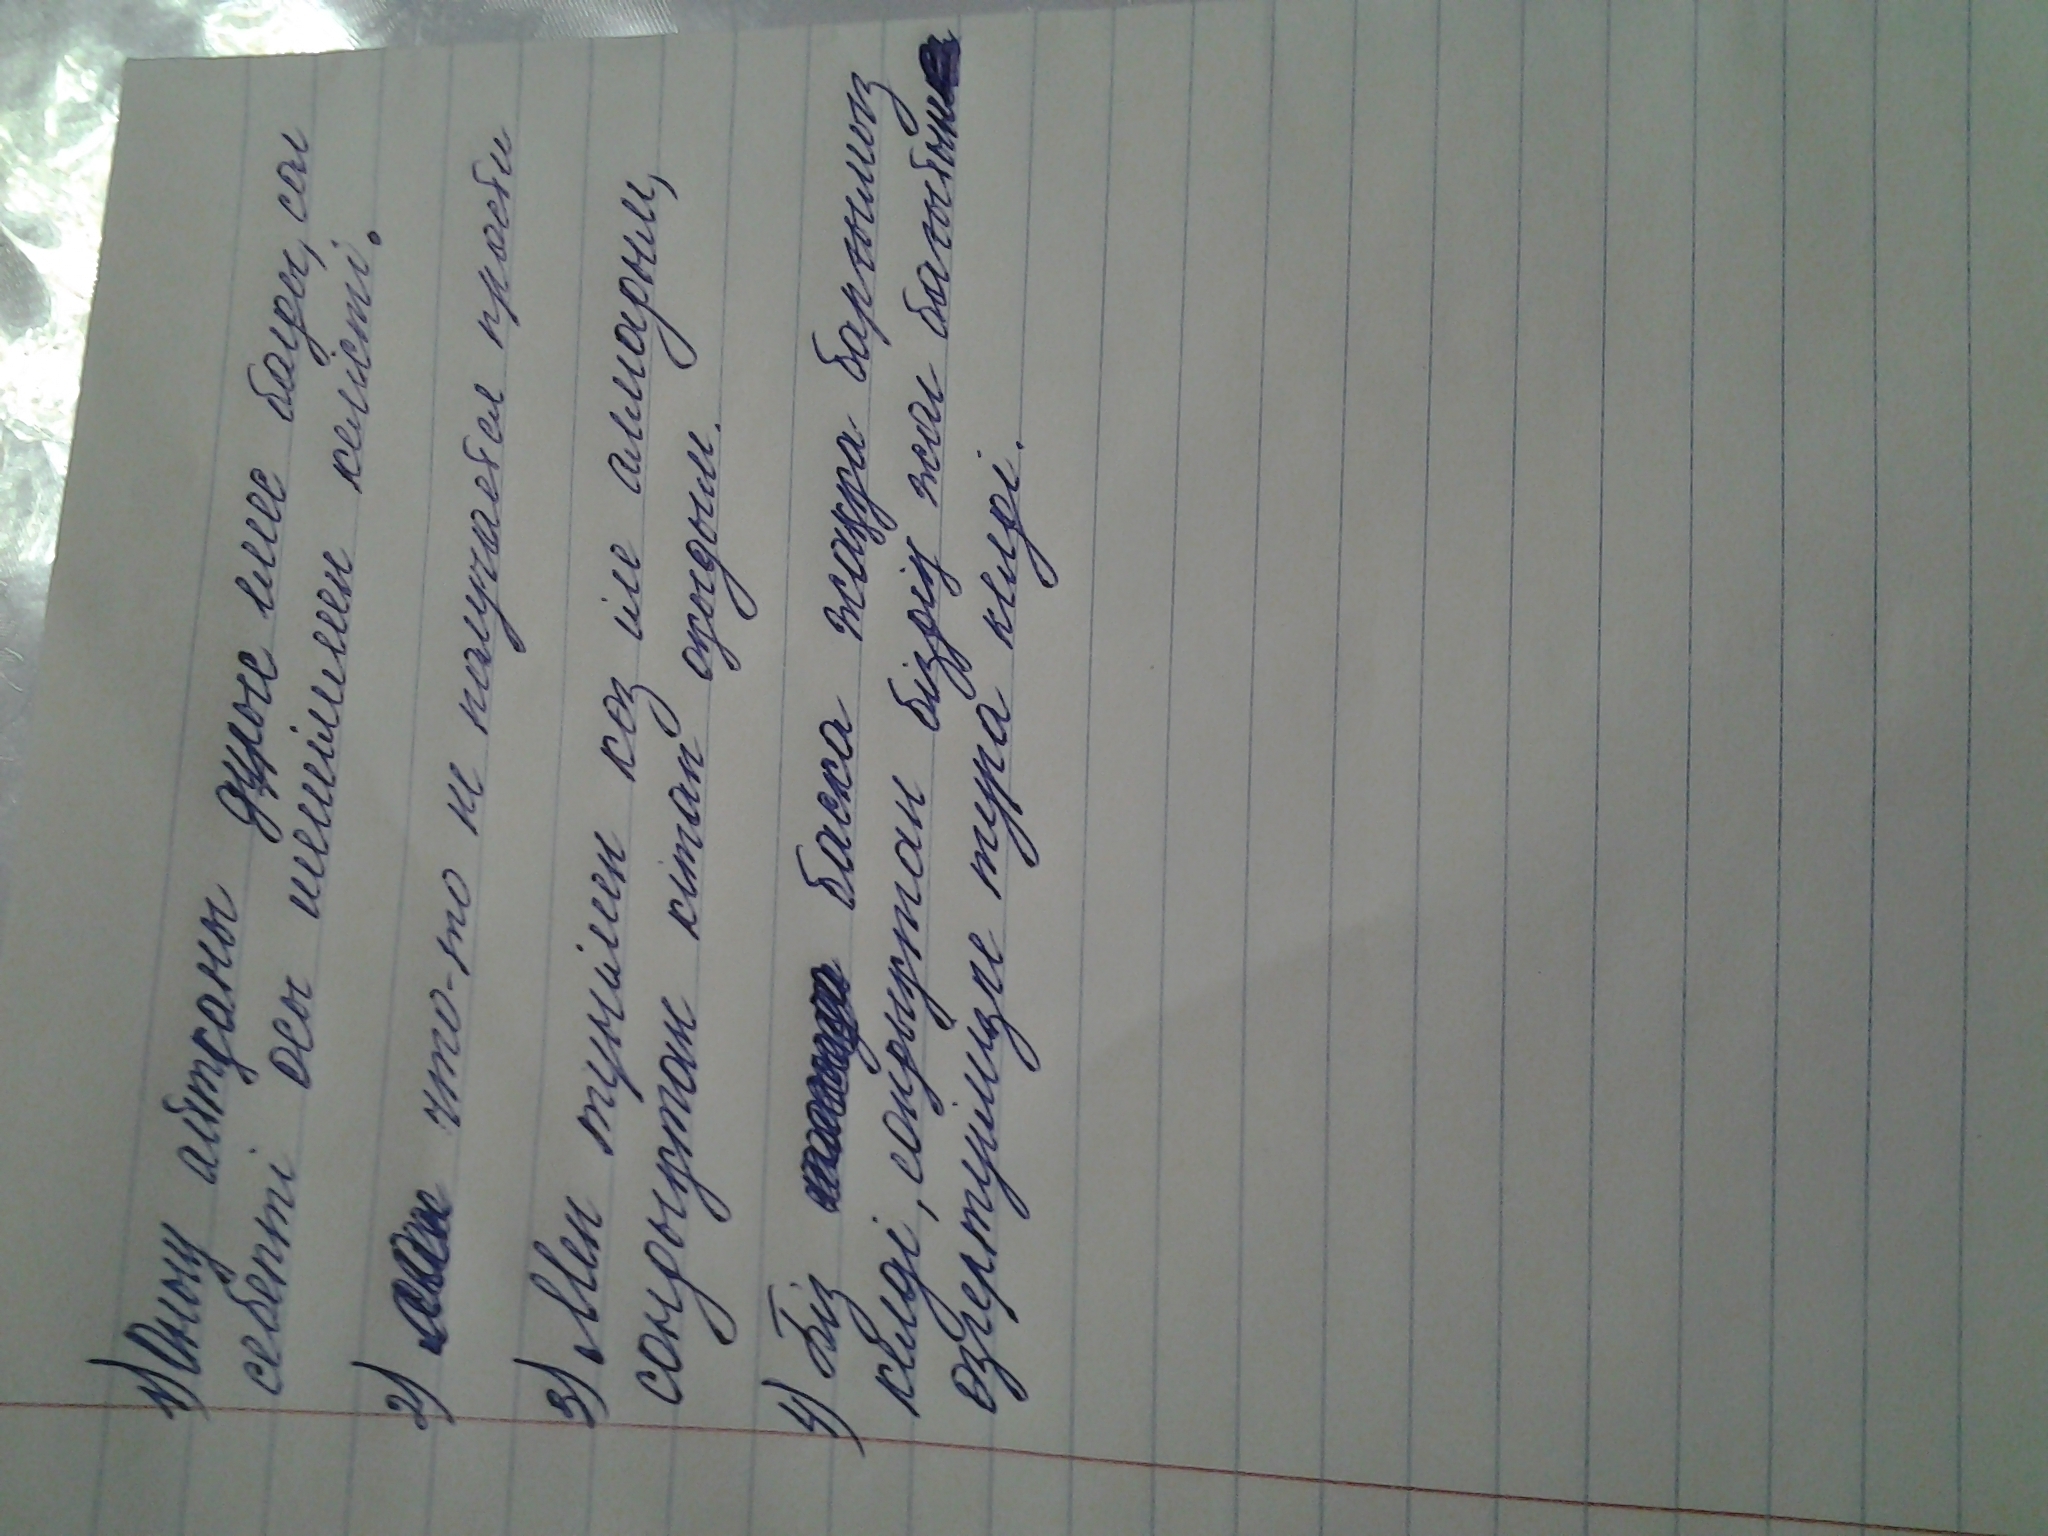 1) Оның айтқаны дұрыс еме баіры, сол
себепті осы шешіммен келісті.
2) что-то не получается прости
3) Мен түнімен көз іле алмадым,
сондықтан кітап оқыдым.
4) Біз баска жаққа барғымыз
келді, сондықтан біздің жол бағытын
өзгертуімізге тура келді.